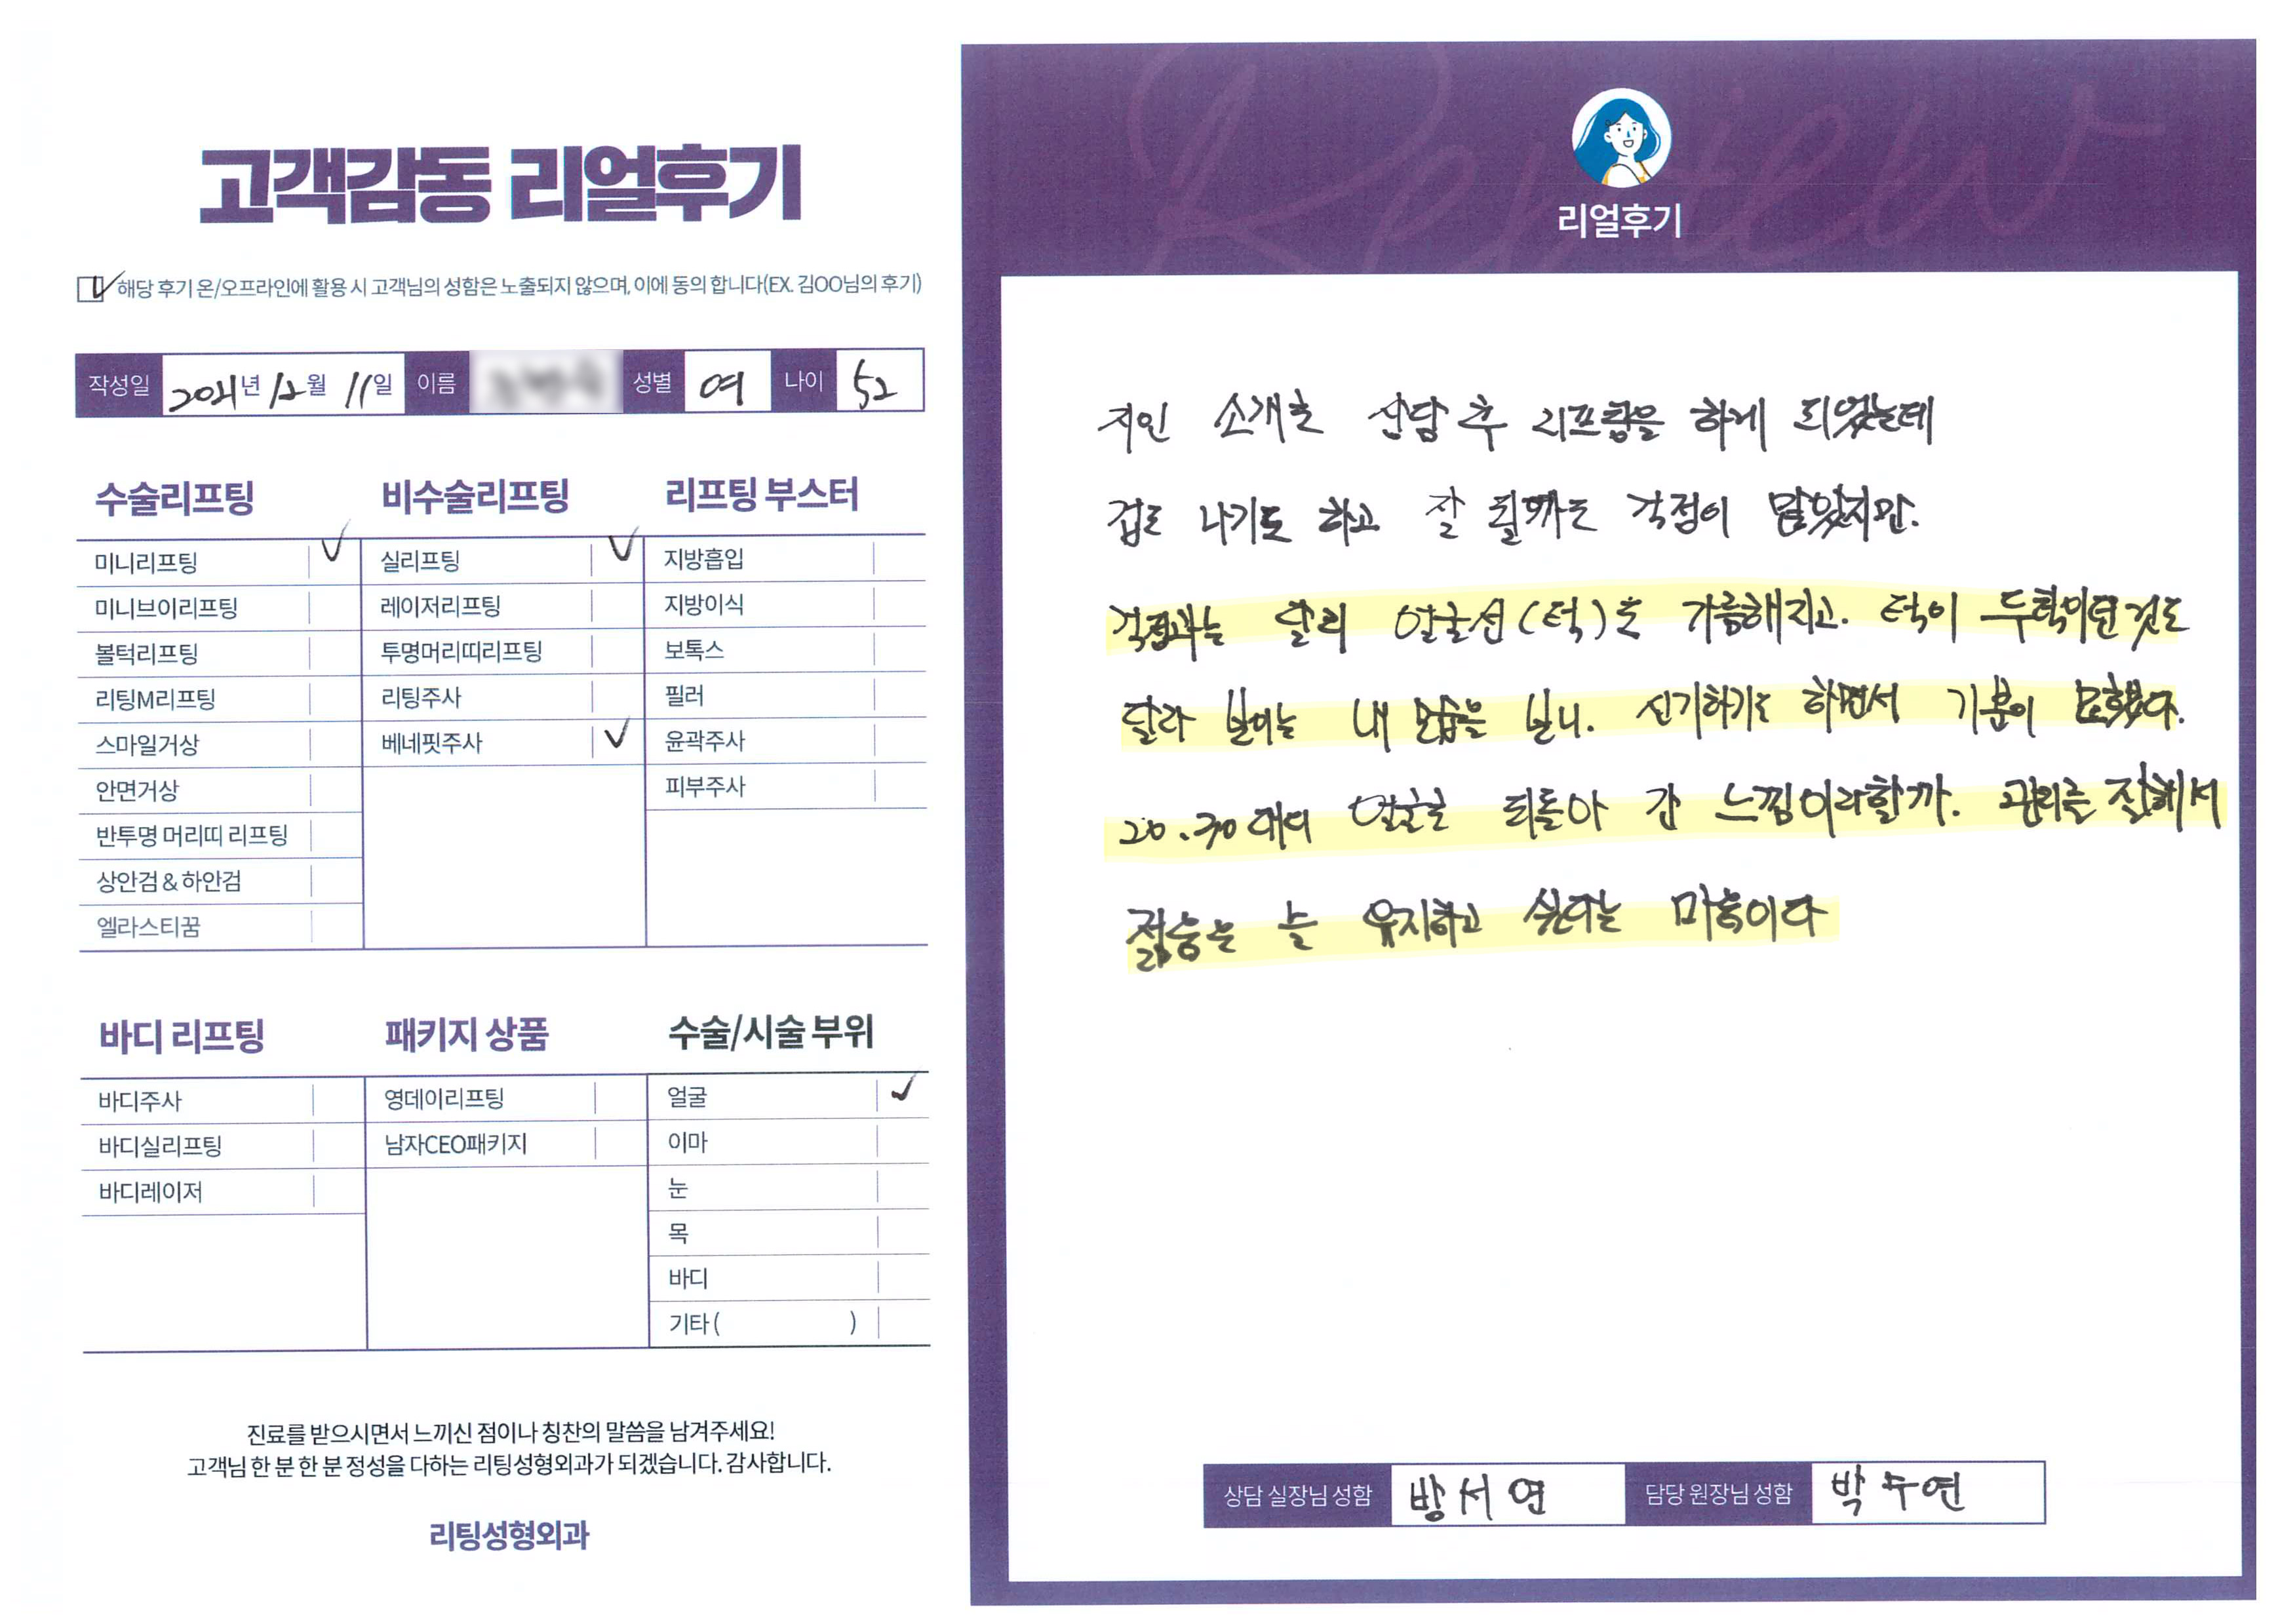 고객감동 리얼후기
해당 후기 온/오프라인에 활용 시 고객님의 성함은 노출되지 않으며, 이에 동의 합니다(EX. 김OO님의 후기)
작성일 2021년 12월 11일 이름 성별 여 나이 52
수술리프팅
미니리프팅
미니브이리프팅
볼턱리프팅
리팅M리프팅
스마일거상
안면거상
반투명 머리띠 리프팅
상안검 & 하안검
엘라스티꿈
비수술리프팅
실리프팅
레이저리프팅
투명머리띠리프팅
리팅주사
베네핏주사
리프팅 부스터
지방흡입
지방이식
보톡스
필러
윤곽주사
피부주사
바디 리프팅
바디주사
바디실리프팅
바디레이저
패키지 상품
영데이리프팅
남자CEO패키지
수술/시술 부위
얼굴
이마
눈
목
바디
기타 ( )
진료를 받으시면서 느끼신 점이나 칭찬의 말씀을 남겨주세요!
고객님 한 분 한 분 정성을 다하는 리팅성형외과가 되겠습니다. 감사합니다.
리팅성형외과
Review
리얼후기
지인 소개로 상담 후 리프팅을 하게 되었는데
겁도 나기도 하고 잘 될까도 걱정이 많았지만.
걱정과는 달리 얼굴선(턱)도 갸름해지고. 턱이 두턱이던 것도
달라 보이는 내 모습을 보니. 신기하기도 하면서 기분이 묘했다.
20.30대의 얼굴로 되돌아 간 느낌이라할까. 관리를 잘해서
젊음을 늘 유지하고 싶다는 마음이다
상담 실장님 성함 방서연 담당 원장님 성함 박수연